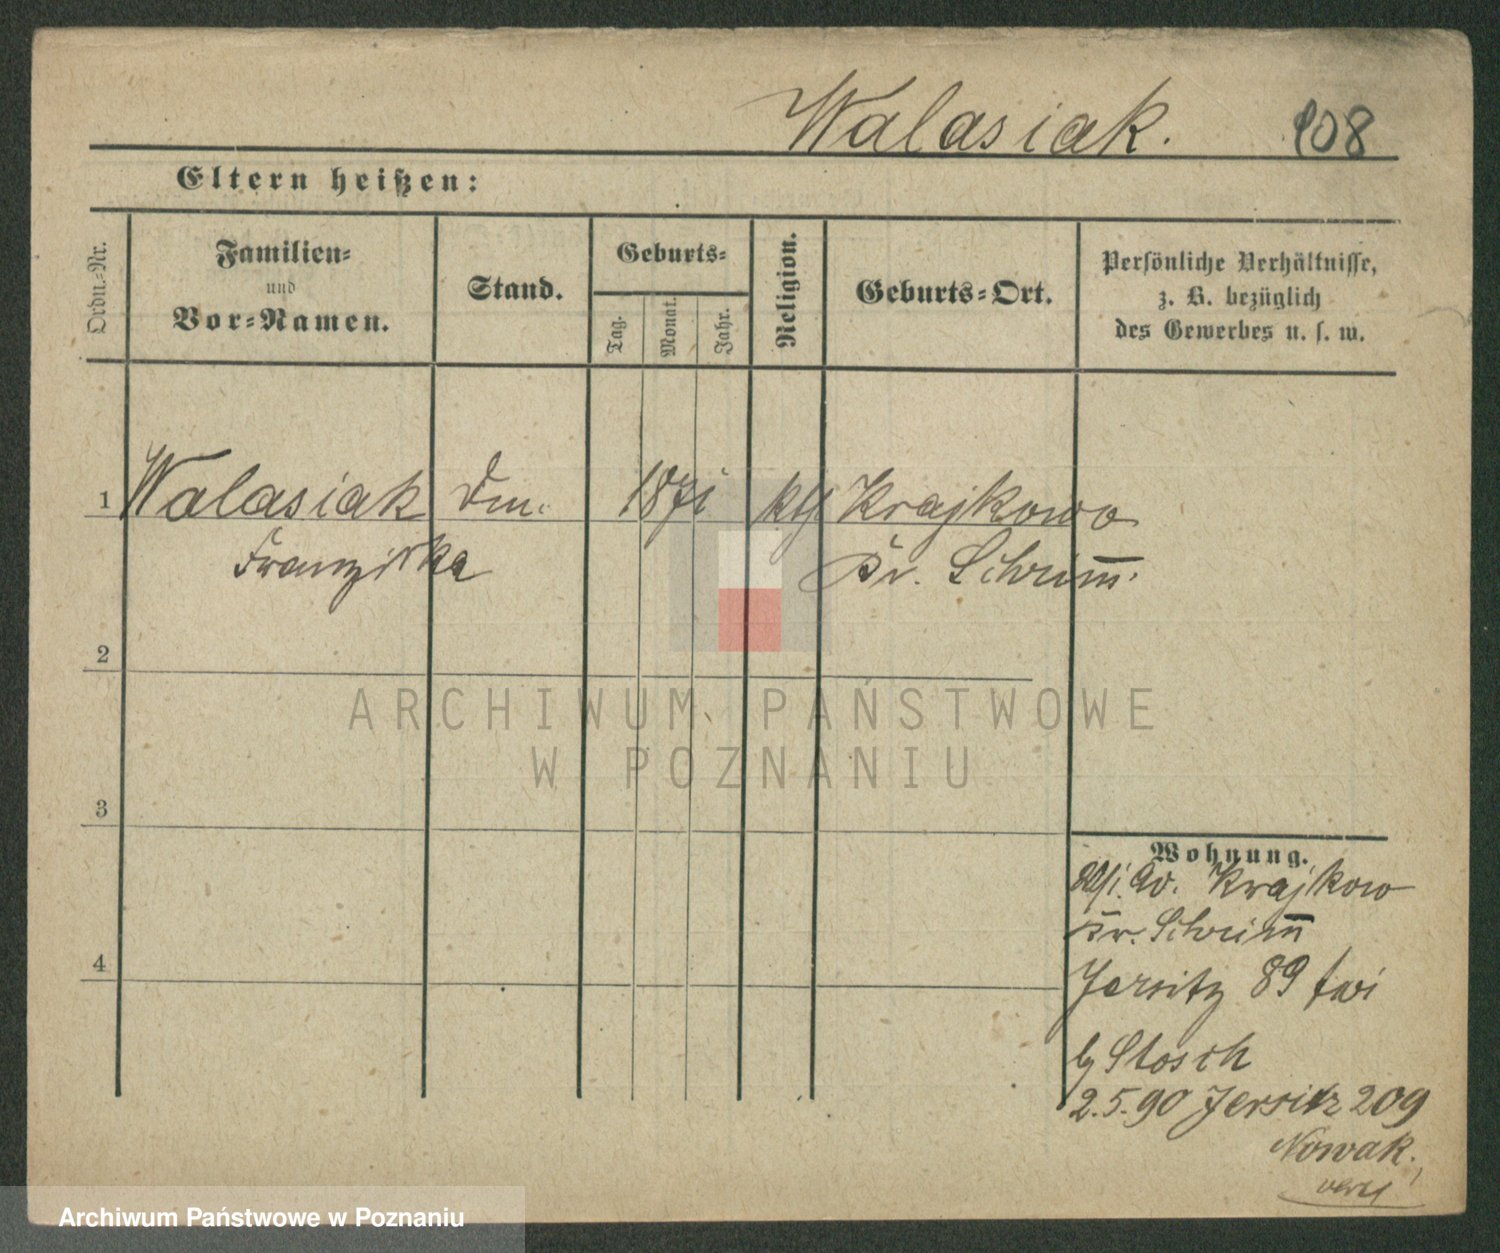 Walasiak. 108
Eltern heißen:
Ordn.-Nr.
Familien-
und
Vor-Namen.
Stand.
Geburts-
Tag.
Monat.
Jahr.
Religion.
Geburts-Ort.
Persönliche Verhältnisse,
z. B. bezüglich
des Gewerbes u. s. w.
1 Walasiak 1871 kth Krajkowo
Franziska Kr. Schrim̅.
2
3
4
Wohnung.
Krajkow
Kr. Schrim̅
Jersitz 89
Stosch
2.5.90 Jersitz 209
Nowak.
ARCHIWUM PAŃSTWOWE
W POZNANIU
Archiwum Państwowe w Poznaniu